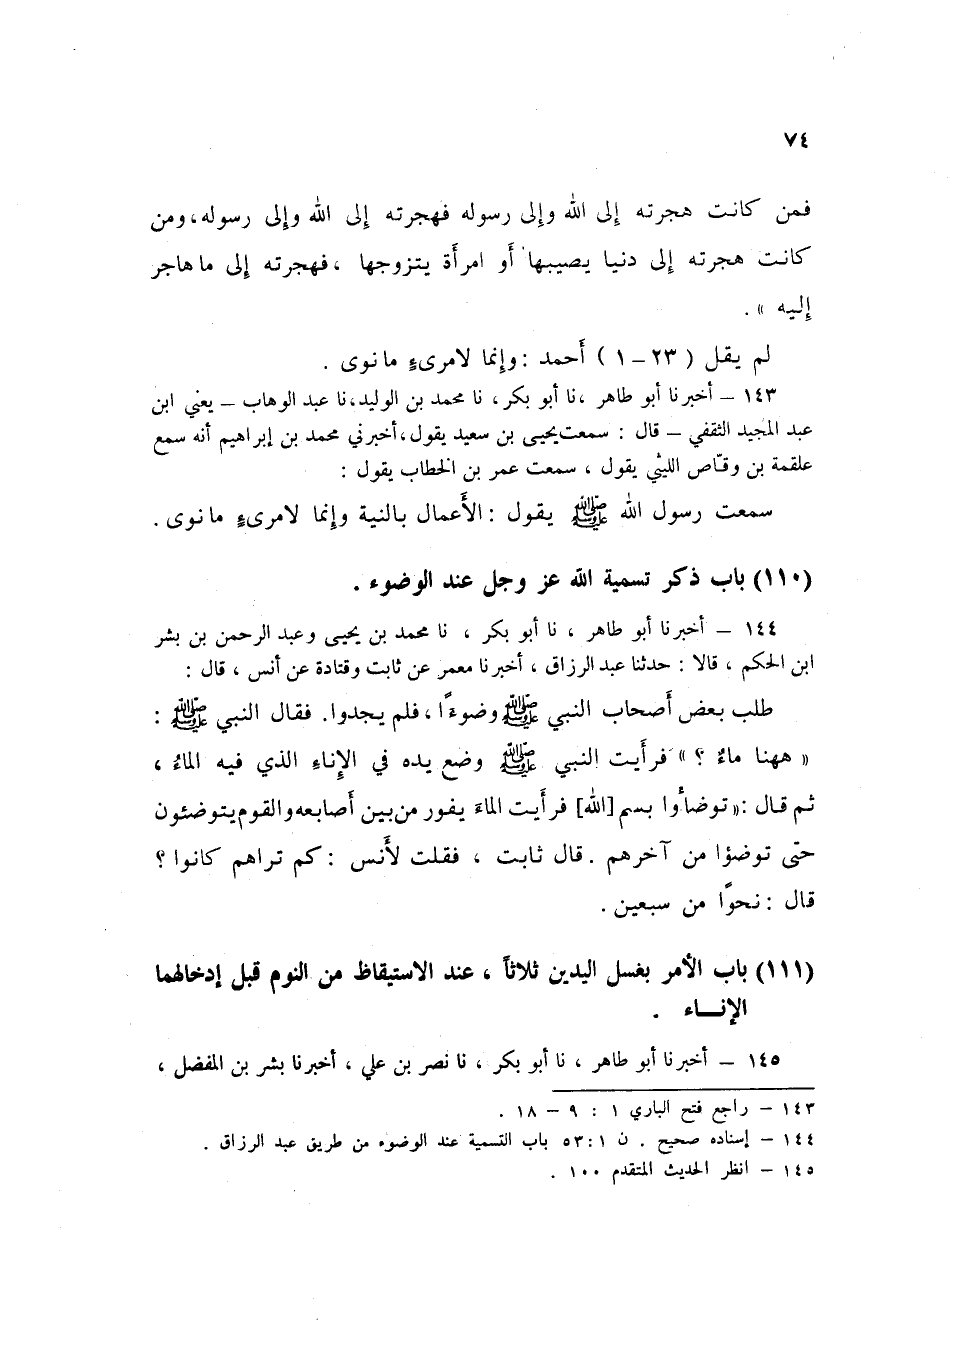 ٧٤
فمن كانت هجرته إلى الله وإلى رسوله فهجرته إلى الله وإلى رسوله، ومن
كانت هجرته إلى دنيا يصيبها أو امرأة يتزوجها ، فهجرته إلى ما هاجر
إليه » .
لم يقل ( ٢٣ – ١ ) أحمد : وإنما لامرىءٍ ما نوى .
١٤٣ – أخبرنا أبو طاهر ، نا أبو بكر ، نا محمد بن الوليد، نا عبد الوهاب – يعني ابن
عبد المجيد الثقفي – قال : سمعت يحيى بن سعيد يقول، أخبرني محمد بن إبراهيم أنه سمع
علقمة بن وقّاص الليثي يقول ، سمعت عمر بن الخطاب يقول :
سمعت رسول الله ﷺ يقول : الأعمال بالنية وإنما لامرىءٍ ما نوى .
(١١٠) باب ذكر تسمية الله عز وجل عند الوضوء .
١٤٤ – أخبرنا أبو طاهر ، نا أبو بكر ، نا محمد بن يحيى وعبد الرحمن بن بشر
ابن الحكم ، قالا : حدثنا عبد الرزاق ، أخبرنا معمر عن ثابت وقتادة عن أنس ، قال :
طلب بعض أصحاب النبي ﷺ وضوءًا ، فلم يجدوا. فقال النبي ﷺ :
« ههنا ماءٌ ؟ » فرأيت النبي ﷺ وضع يده في الإناءِ الذي فيه الماءُ ،
ثم قال : « توضأوا بسم [الله] فرأيت الماءَ يفور من بين أصابعه والقوم يتوضئون
حتّى توضؤا من آخرهم . قال ثابت ، فقلت لأنس : كم تراهم كانوا ؟
قال : نحوًا من سبعين .
(١١١) باب الأمر بغسل اليدين ثلاثاً ، عند الاستيقاظ من النوم قبل إدخالهما
الإنـــاء .
١٤٥ – أخبرنا أبو طاهر ، نا أبو بكر ، نا نصر بن علي ، أخبرنا بشر بن المفضل ،
١٤٣ – راجع فتح الباري ١ : ٩ – ١٨ .
١٤٤ – إسناده صحيح . ن ١ : ٥٣ باب التسمية عند الوضوء من طريق عبد الرزاق .
١٤٥ – انظر الحديث المتقدم ١٠٠ .